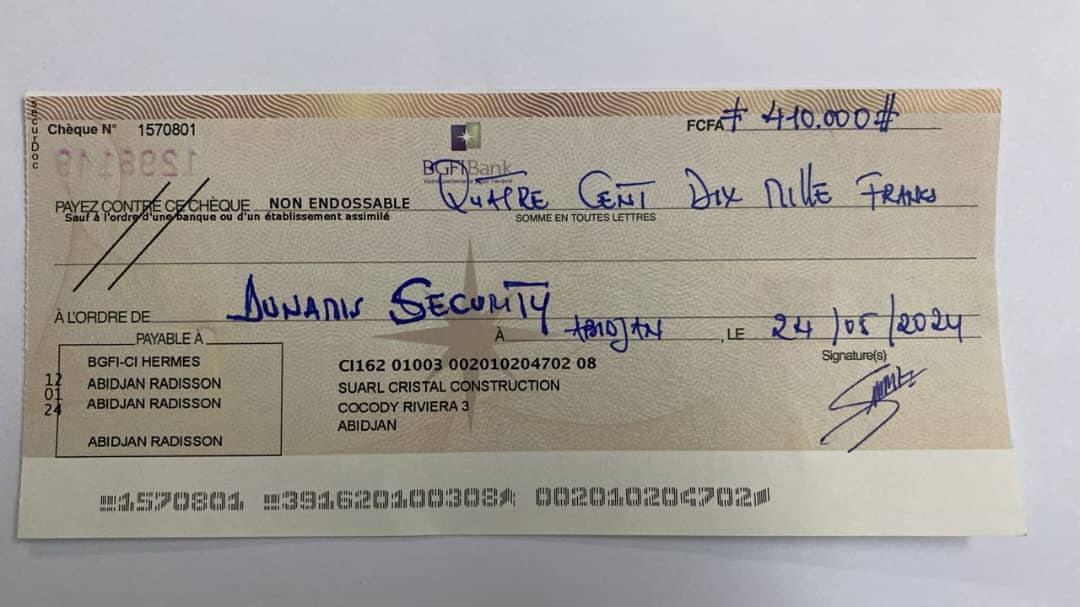 SecurDoc
Chèque N° 1570801
FCFA # 410.000 #
1296119
BGFIBank
PAYEZ CONTRE CE CHÈQUE NON ENDOSSABLE QUATRE CENT DIX MILLE FRANCS
Sauf à l'ordre d'une banque ou d'un établissement assimilé
SOMME EN TOUTES LETTRES
À L'ORDRE DE DUNAMIS SECURITY
À ABIDJAN , LE 24/05/2024
PAYABLE À
Signature(s)
BGFI-CI HERMES
ABIDJAN RADISSON
ABIDJAN RADISSON
ABIDJAN RADISSON
12
01
24
CI162 01003 002010204702 08
SUARL CRISTAL CONSTRUCTION
COCODY RIVIERA 3
ABIDJAN
1570801 391620100308 002010204702